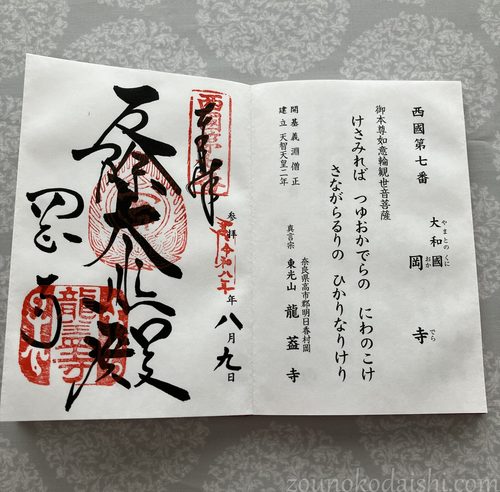 西國第七番
やまとのくに
大和國
おか でら
岡 寺
御本尊如意輪観世音菩薩
けさみれば つゆおかでらの にわのこけ
さながらるりの ひかりなりけり
開基 義淵僧正
建立 天智天皇二年
奈良県高市郡明日香村岡
真言宗 東光山 龍蓋寺
参拝 令和八年 年 八月九日
奉拝
大悲殿
岡寺
龍蓋寺
zounokodaishi.com